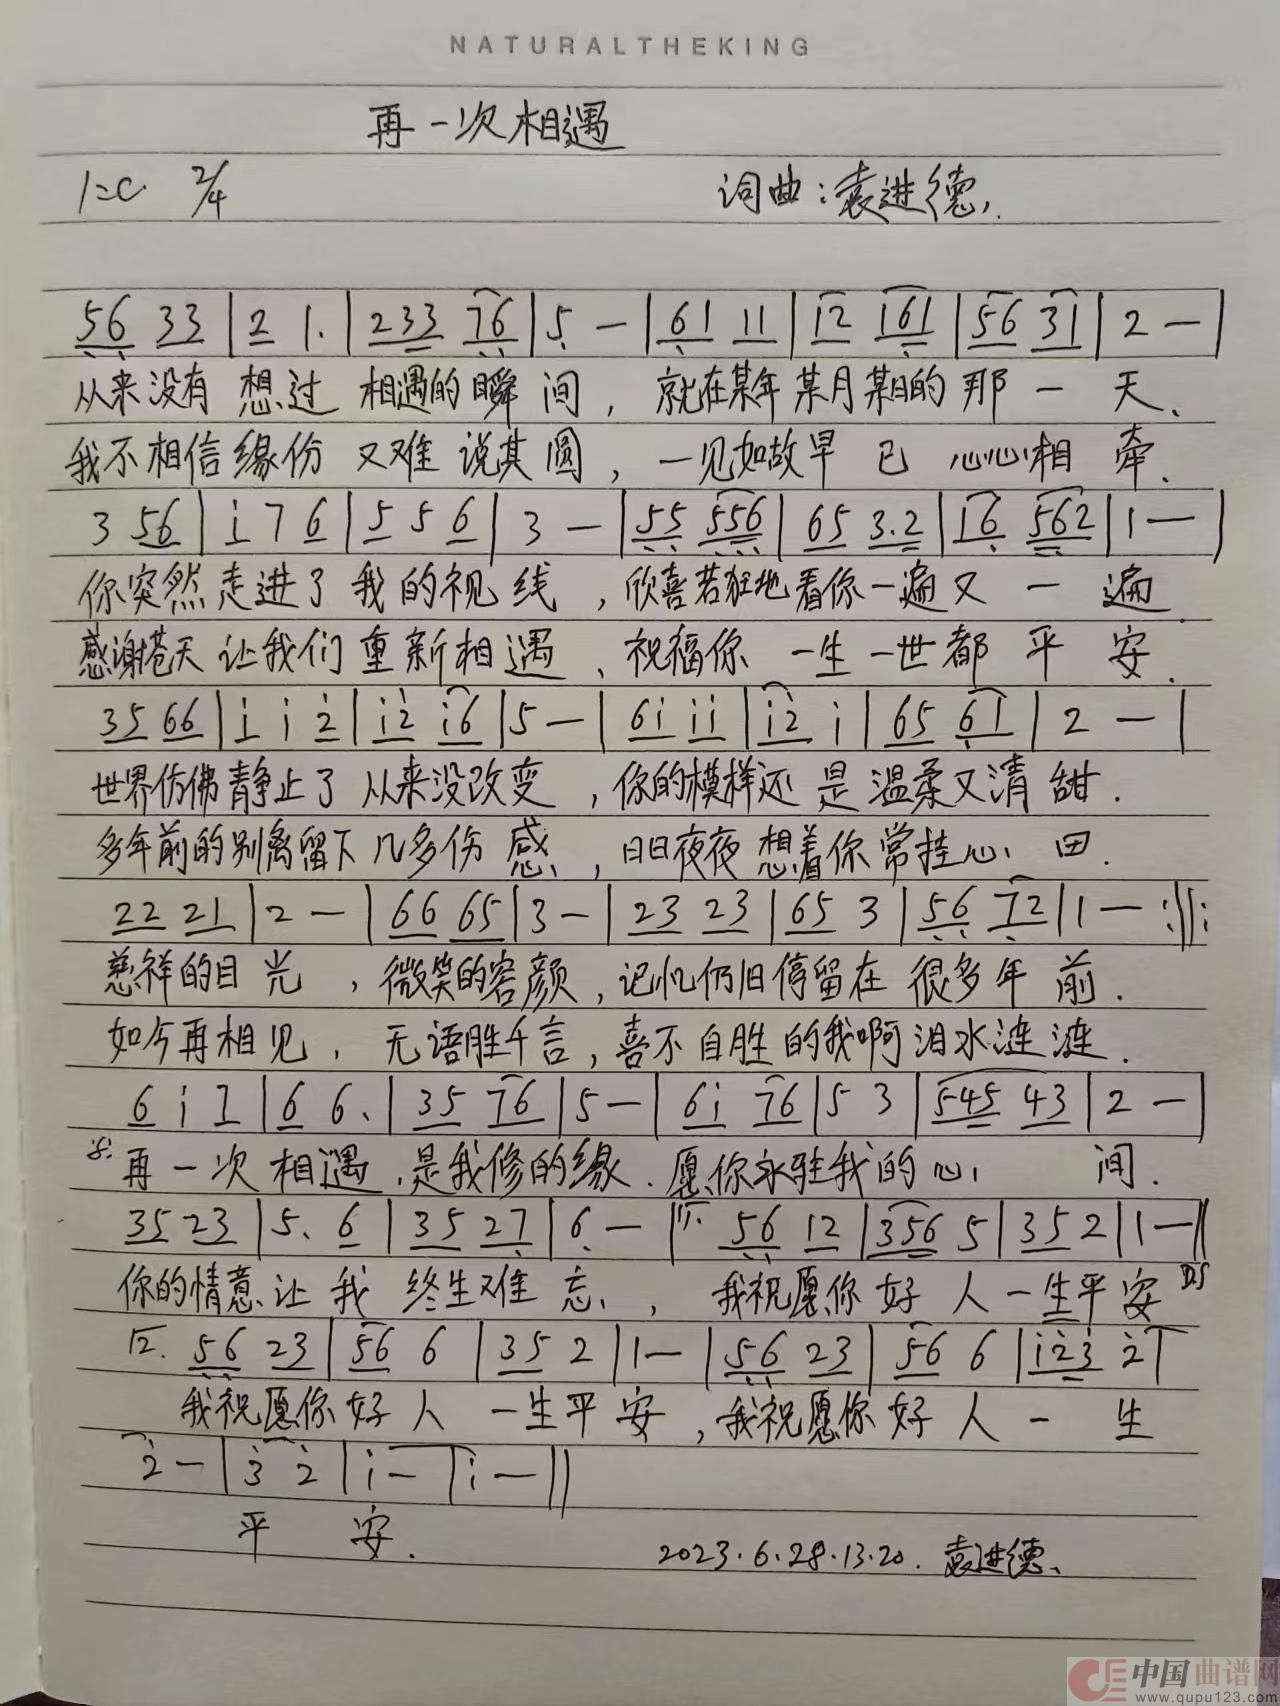 NATURALTHEKING
再一次相遇
1=C 2/4 词曲:袁进德.
56 33 | 2 1. | 233 76 | 5 — | 61 11 | 12 161 | 56 31 | 2 — |
从来没有想过相遇的瞬间,就在某年某月某日的那一天.
我不相信缘份又难说其圆,一见如故早已心心相牵.
3 56 | i 7 6 | 5 5 6 | 3 — | 55 556 | 65 3.2 | 16 562 | 1 — |
你突然走进了我的视线,欣喜若狂地看你一遍又一遍.
感谢苍天让我们重新相遇,祝福你一生一世都平安.
35 66 | i i 2 | i2 i6 | 5 — | 6i ii | i2 i | 65 61 | 2 — |
世界仿佛静止了从来没改变,你的模样还是温柔又清甜.
多年前的别离留下几多伤感,日日夜夜想着你常挂心田.
22 21 | 2 — | 66 65 | 3 — | 23 23 | 65 3 | 56 72 | 1 — :||:
慈祥的目光,微笑的容颜,记忆仍旧停留在很多年前.
如今再相见,无语胜千言,喜不自胜的我啊泪水涟涟.
6 i 7 | 6 6. | 35 76 | 5 — | 6i 76 | 5 3 | 545 43 | 2 — |
再一次相遇,是我修的缘.愿你永驻我的心间.
35 23 | 5. 6 | 35 27 | 6 — | 1. 56 12 | 356 5 | 35 2 | 1 — ||
你的情意让我终生难忘,我祝愿你好人一生平安 DS
2. 56 23 | 56 6 | 35 2 | 1 — | 56 23 | 56 6 | i23 2 |
我祝愿你好人一生平安,我祝愿你好人一生
2 — | 3 2 | i — | i — ||
平安.
2023.6.28.13.20.袁进德.
中国曲谱网
www.qupu123.com